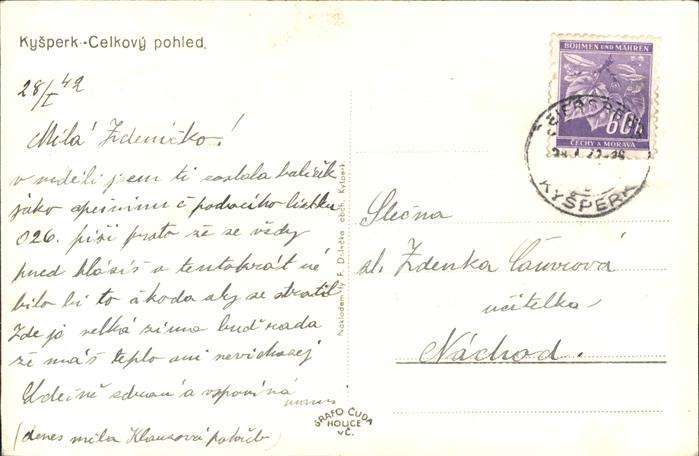 Kyšperk - Celkový pohled.
28/I 42
Milá Zdeničko!
v neděli jsem ti zaslala balíček
jako č podacího lístku
026. píši proto že se vždy
před hlásíš a tentokrát né
bilo bi to škoda aby se stratil
Zde je velká zima buď ráda
že máš teplo ani nevicházej
Udeině zdraví a vzpomíná
(dnes měla Klausová pohřeb)
Nakladem fy F. obch. Kyšperk
GRAFO ČUDA
HOLICE
v Č.
BÖHMEN UND MÄHREN
60h
ČECHY A MORAVA
KYŠPERK
Slečna
sl. Zdenka Čáurová
učitelka
Náchod.